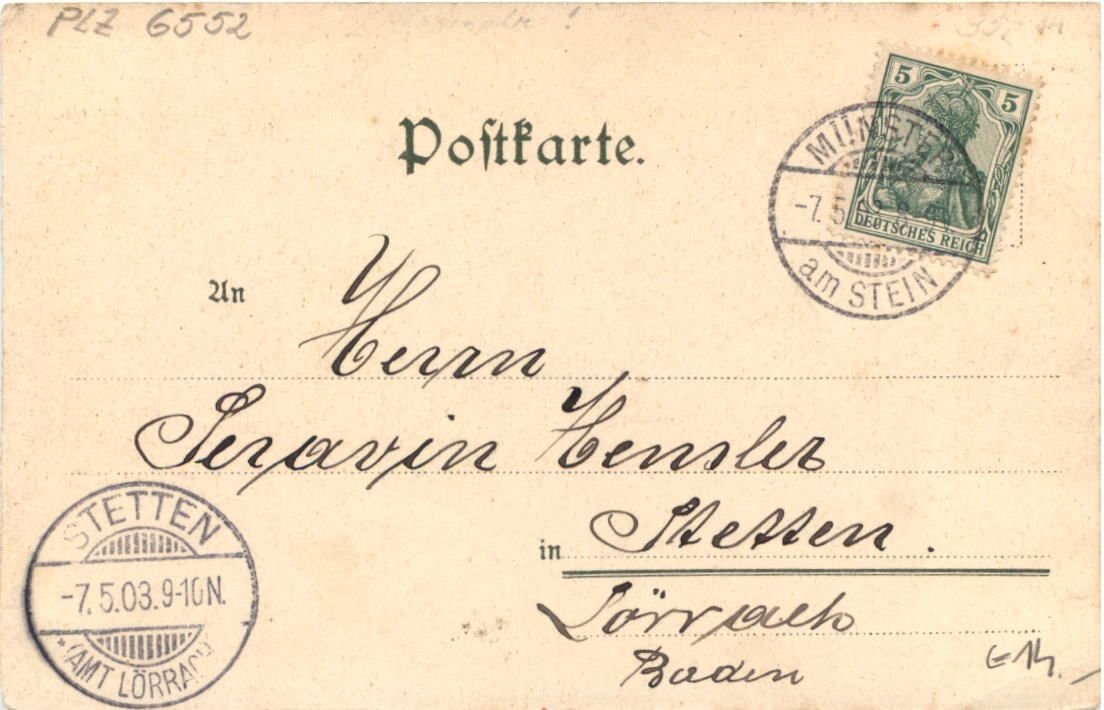 PLZ 6552
Postkarte.
5 5
DEUTSCHES REICH
MÜNSTER
-7.5
am STEIN
An
Herrn
Seravin Hensler
in Stetten.
Lörrach
Baden
STETTEN
-7.5.03.9-10N.
*(AMT LÖRRACH)